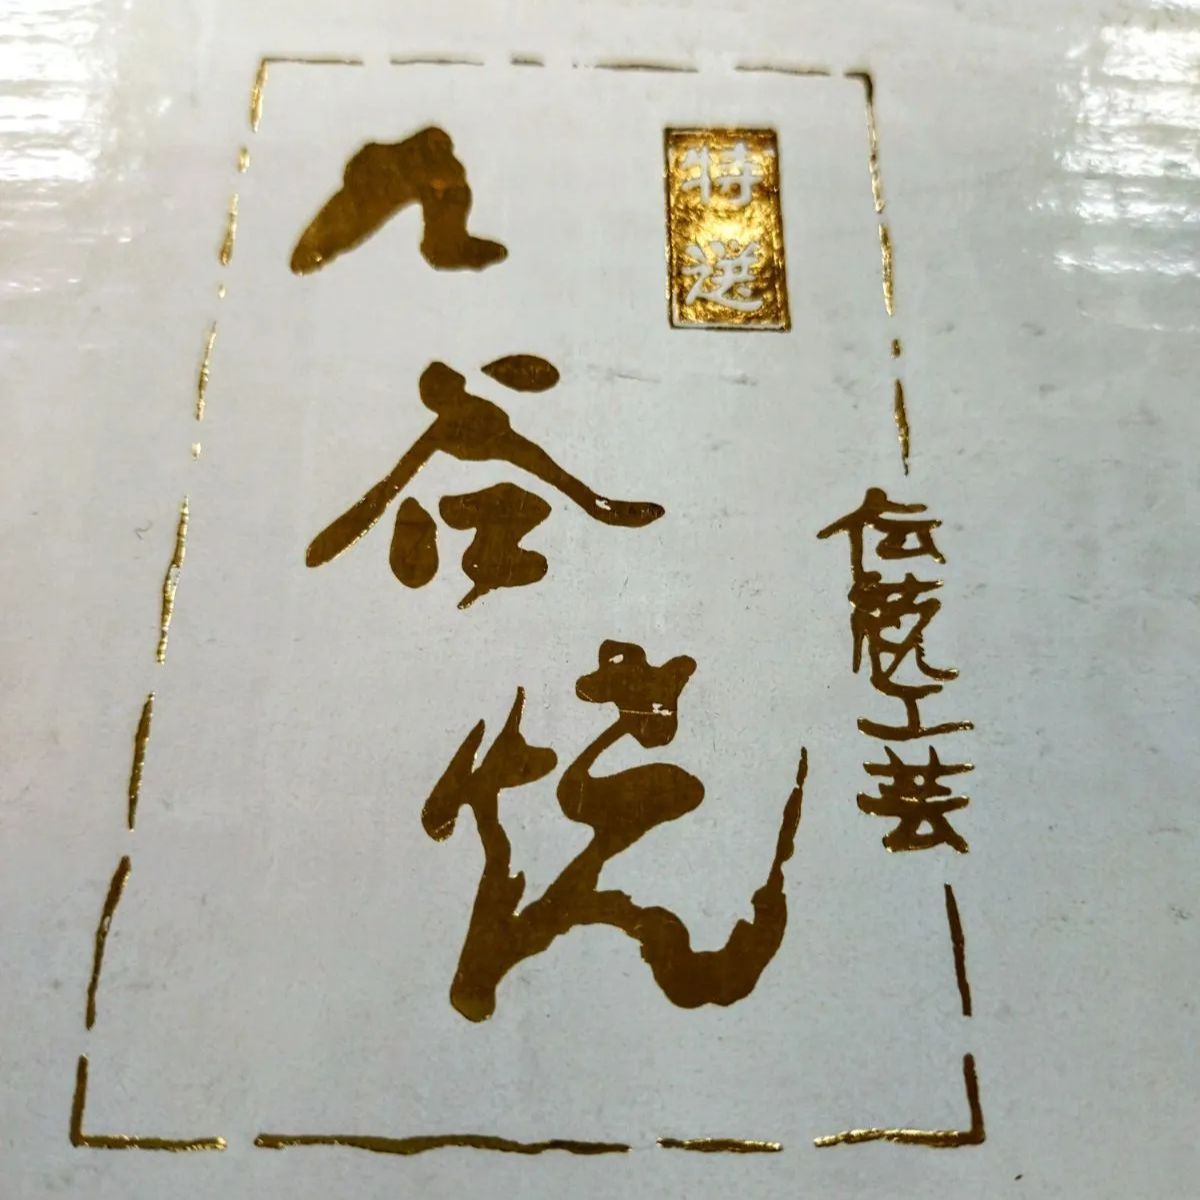 伝統工芸
特選
九谷焼